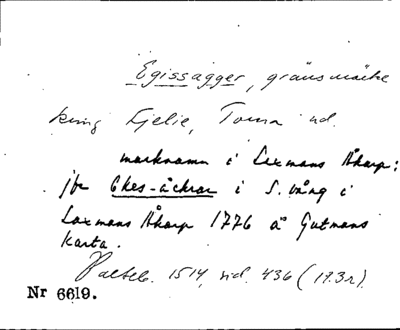 Egissagger, gränsmärke
kring Fjelie, Torna hd.
marknamn i Laxmans Åkarp:
jfr Ekes-åckrar i S. vång i
Laxmans Åkarp 1776 å Gutmans
karta.
1514, sid. 436 (17.3r).
Nr 6619.